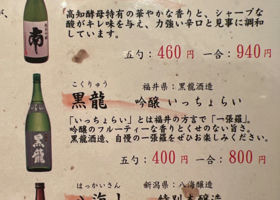 高知酵母特有の華やかな香りと、シャープな
酸がキレ味を与え、力強い辛口と見事に調和
しています。
五勺：460円 一合：940円
南
こくりゅう
黒龍
福井県：黒龍酒造
吟醸 いっちょらい
「いっちょらい」とは福井の方言で「一張羅」。
吟醸のフルーティーな香りとくせのない旨さ。
黒龍酒造、自慢の一張羅をぜひお楽しみください。
五勺：400円 一合：800円
黒龍
はっかいさん
新潟県：八海醸造
特別本醸造